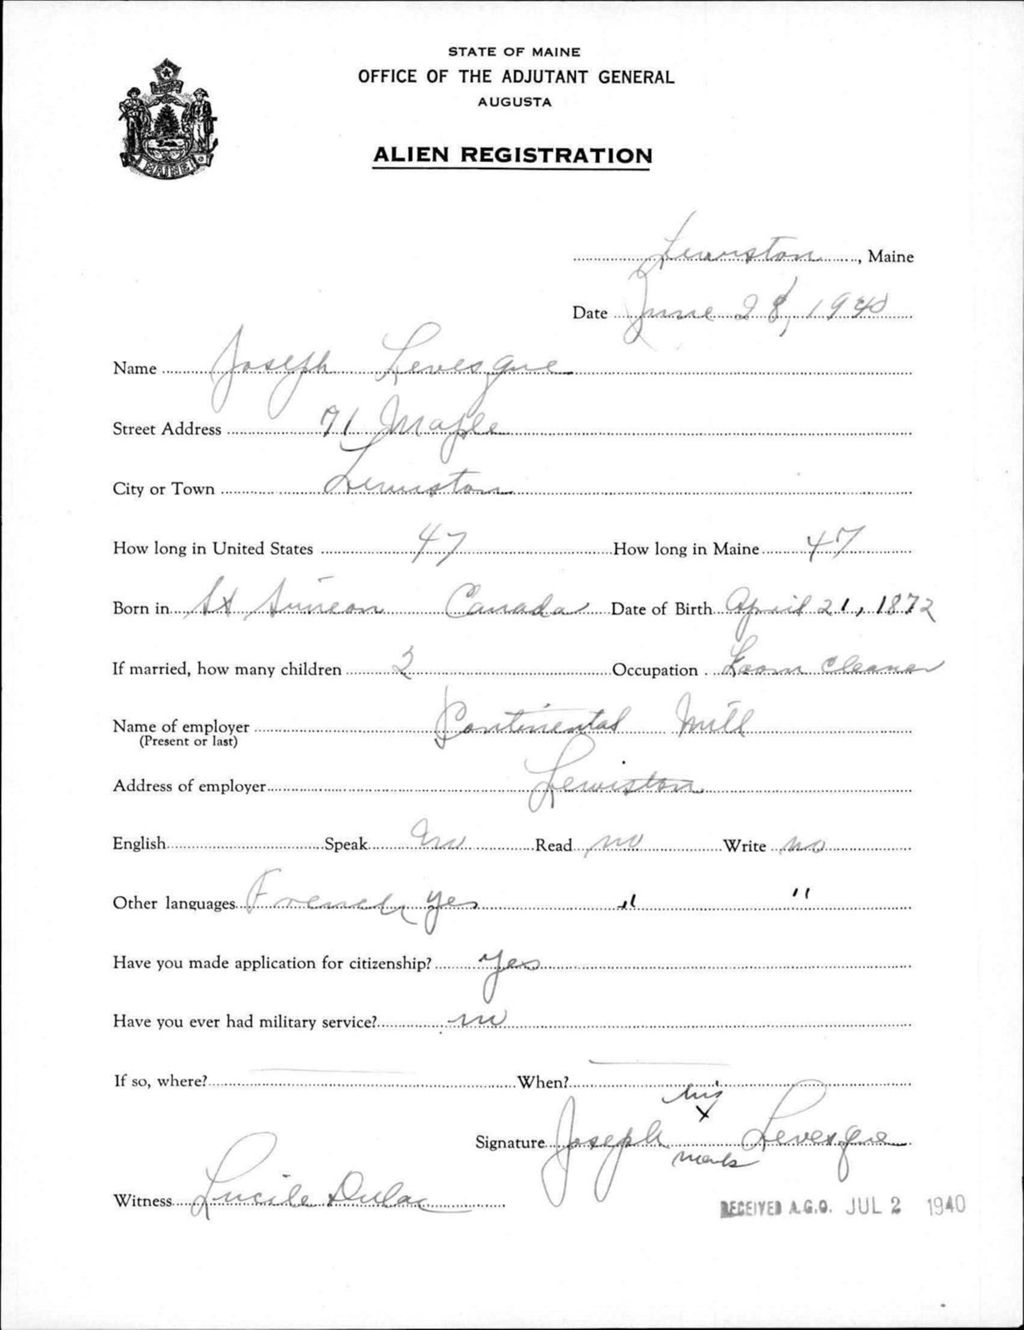 STATE OF MAINE
OFFICE OF THE ADJUTANT GENERAL
AUGUSTA
ALIEN REGISTRATION
MAINE
Lewiston, Maine
Date June 28, 1940
Name Joseph Levesque
Street Address 71 Maple
City or Town Lewiston
How long in United States 47 How long in Maine 47
Born in St Simeon Canada Date of Birth April 21, 1872
If married, how many children 2 Occupation Loom Cleaner
Name of employer Continental Mill
(Present or last)
Address of employer Lewiston
English Speak No Read no Write no
Other languages French yes " "
Have you made application for citizenship? Yes
Have you ever had military service? no
If so, where? — When? —
his
Signature Joseph X Levesque
mark
Witness Lucile Dulac
RECEIVED A.G.O. JUL 2 1940